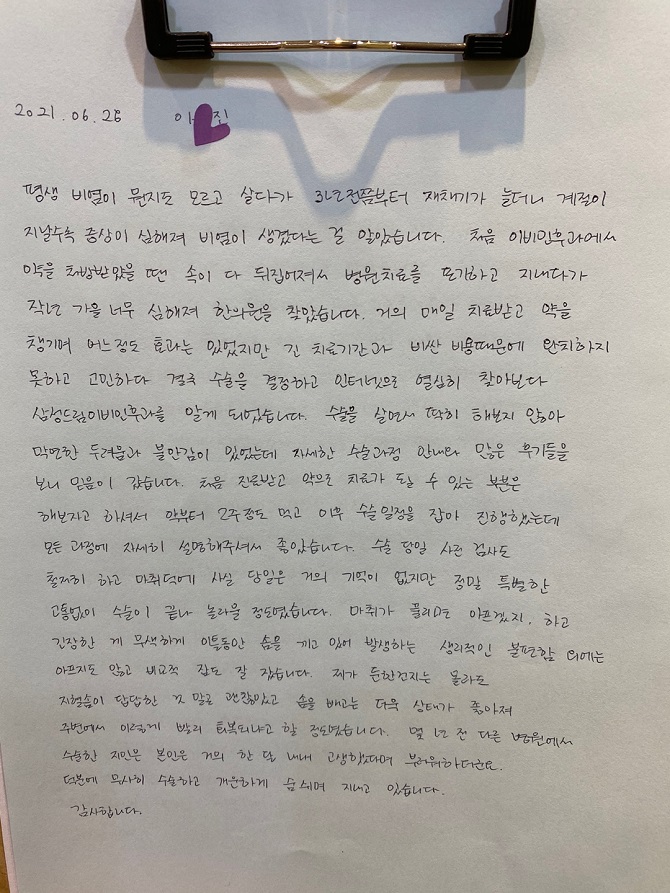 2021.06.26 이 진
평생 비염이 뭔지도 모르고 살다가 3년전쯤부터 재채기가 늘더니 계절이
지날수록 증상이 심해져 비염이 생겼다는 걸 알았습니다. 처음 이비인후과에서
약을 처방받았을 땐 속이 다 뒤집어져서 병원치료를 포기하고 지내다가
작년 가을 너무 심해져 한의원을 찾았습니다. 거의 매일 치료받고 약을
챙기며 어느정도 효과는 있었지만 긴 치료기간과 비싼 비용때문에 완치하지
못하고 고민하다 결국 수술을 결정하고 인터넷으로 열심히 찾아보다
삼성드림이비인후과를 알게 되었습니다. 수술을 살면서 딱히 해보지 않아
막연한 두려움과 불안감이 있었는데 자세한 수술과정 안내와 많은 후기들을
보니 믿음이 갔습니다. 처음 진료받고 약으로 치료가 될 수 있는 부분은
해보자고 하셔서 약부터 2주정도 먹고 이후 수술일정을 잡아 진행했는데
모든 과정에 자세히 설명해주셔서 좋았습니다. 수술 당일 사전 검사도
철저히 하고 마취덕에 사실 당일은 거의 기억이 없지만 정말 특별한
고통없이 수술이 끝나 놀라울 정도였습니다. 마취가 풀리면 아프겠지, 하고
긴장한 게 무색하게 이틀동안 솜을 끼고 있어 발생하는 생리적인 불편함 외에는
아프지도 않고 비교적 잠도 잘 잤습니다. 제가 둔한건지는 몰라도
지혈솜이 답답한 것 말곤 괜찮았고 솜을 빼고는 더욱 상태가 좋아져
주변에서 이렇게 빨리 회복되냐고 할 정도였습니다. 몇 년 전 다른 병원에서
수술한 지인은 본인은 거의 한 달 내내 고생했다며 부러워하더군요.
덕분에 무사히 수술하고 개운하게 숨쉬며 지내고 있습니다.
감사합니다.